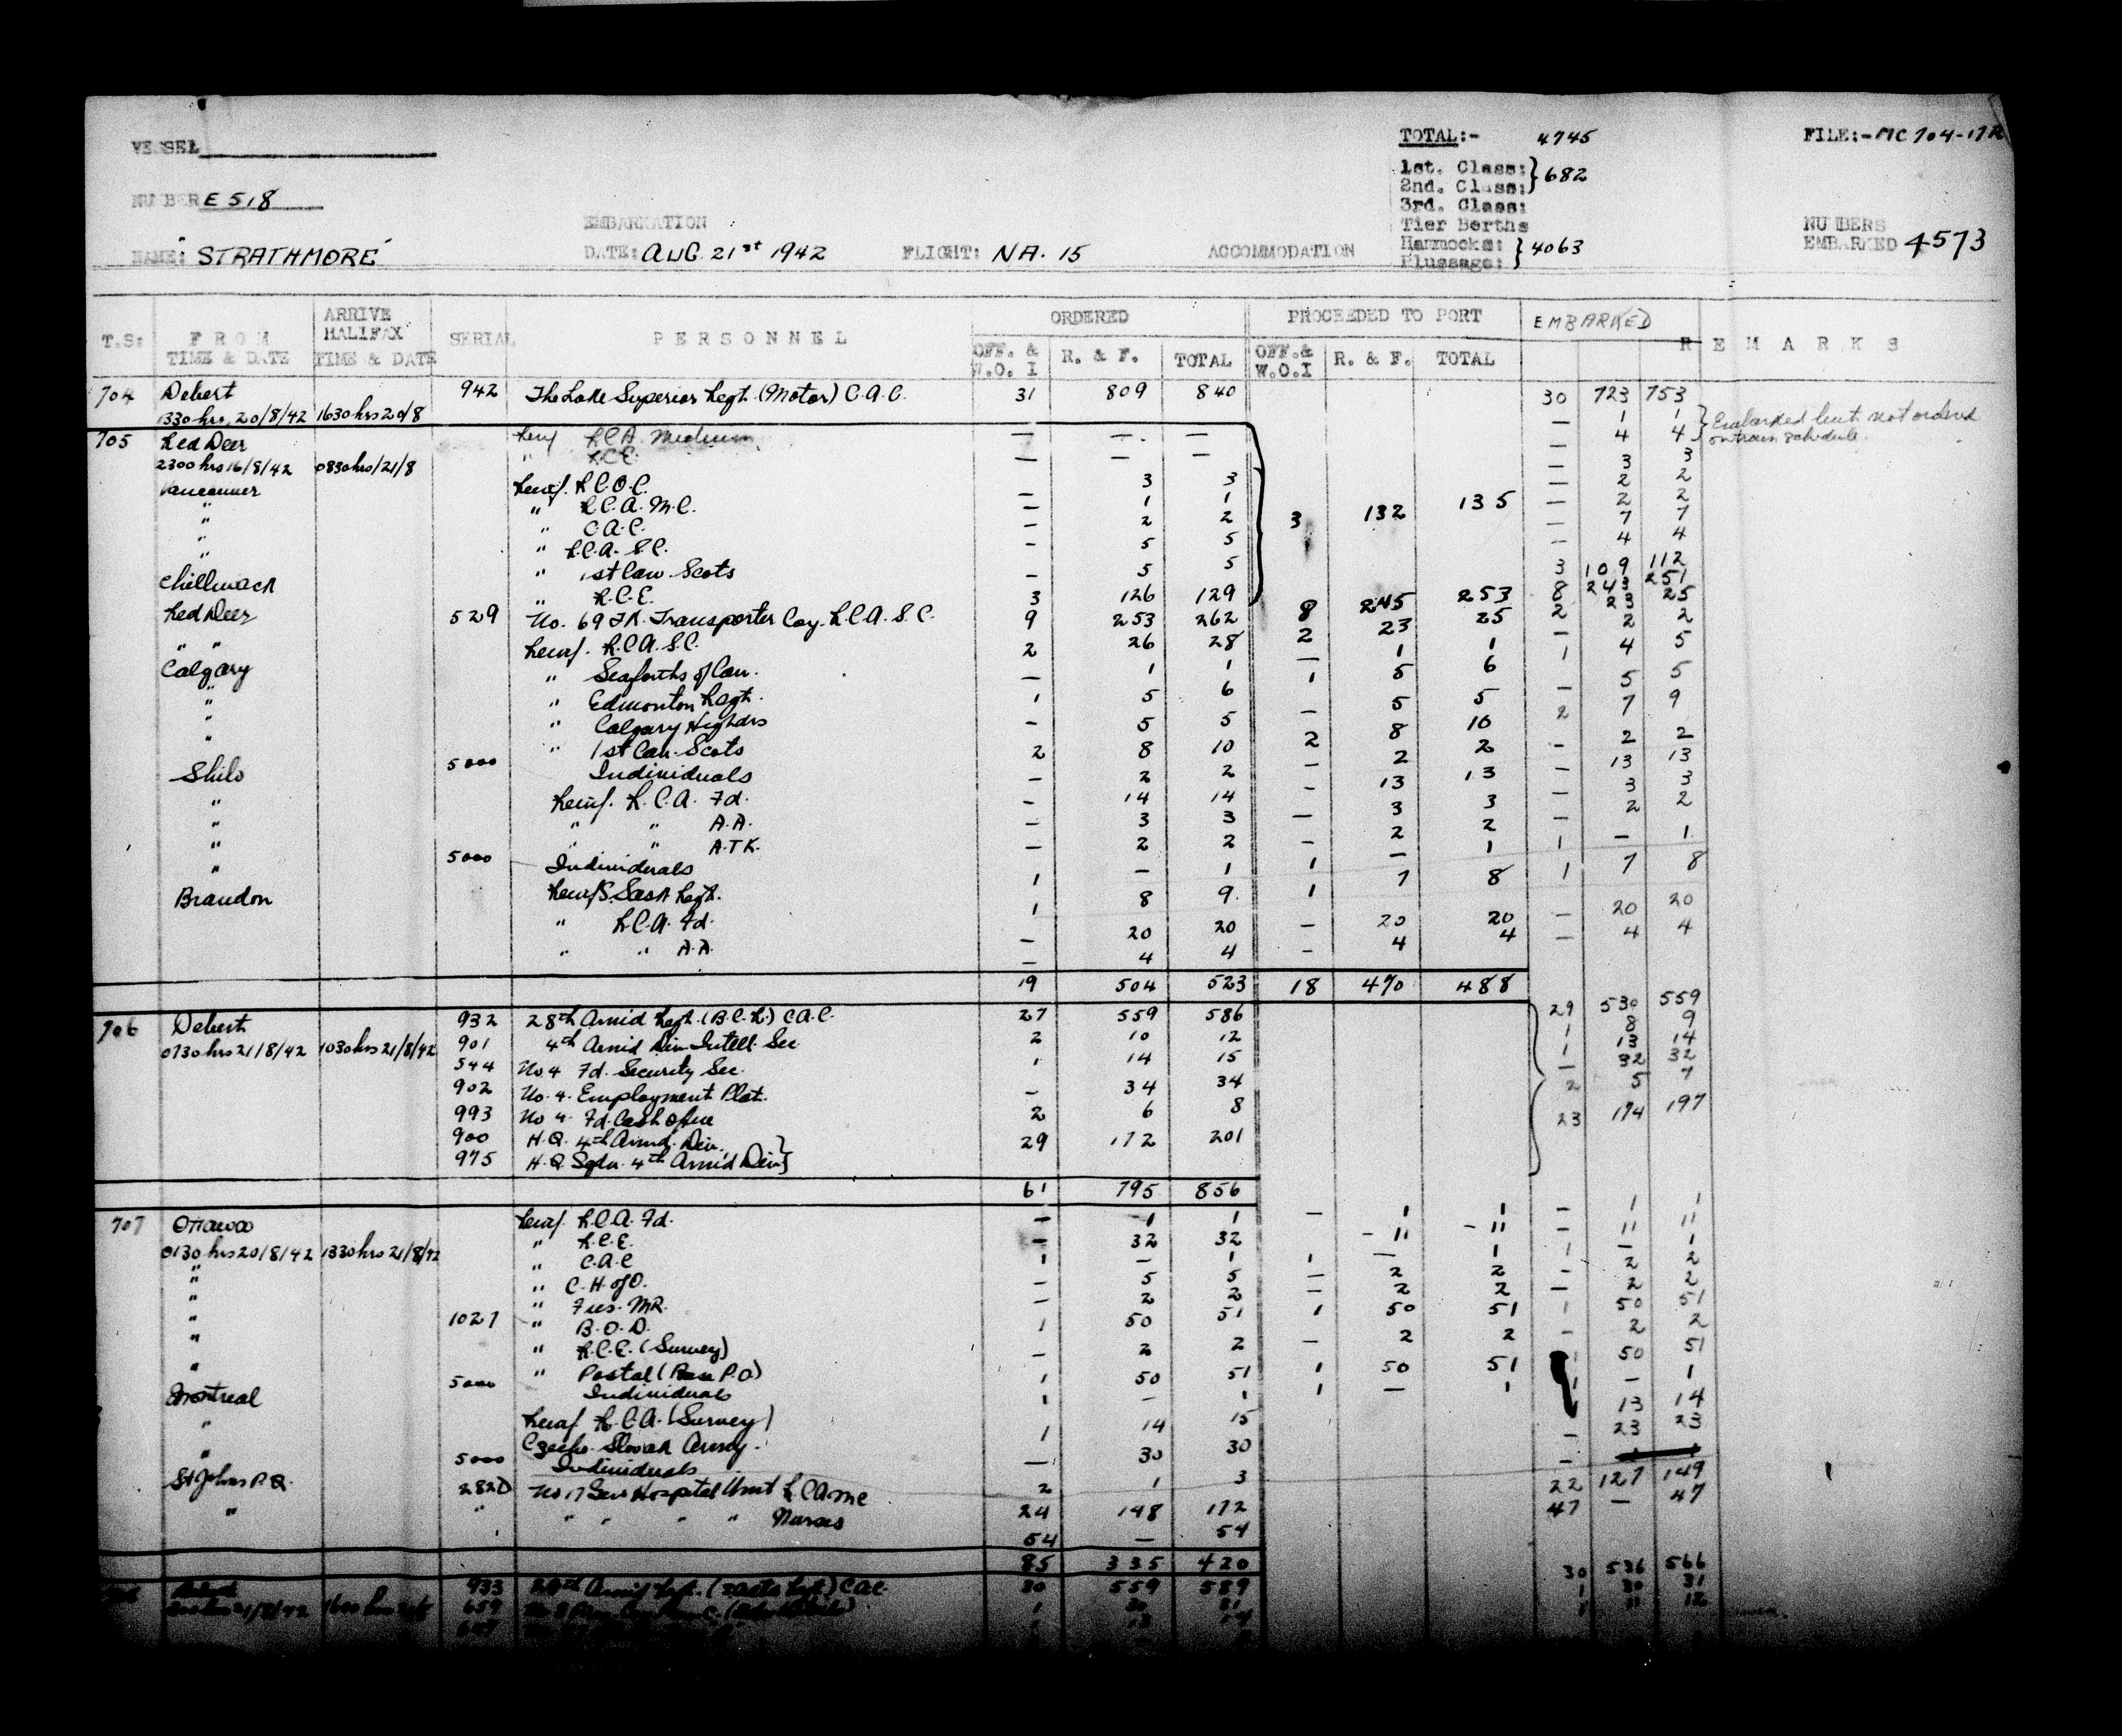 VESSEL
TOTAL:- 4745
FILE:- MC 704-17R
1st. Class: } 682
2nd. Class:
3rd. Class:
NUMBER E518
Tier Berths
EMBARKATION
NUMBERS
NAME: "STRATHMORE" DATE: AUG. 21st 1942 FLIGHT: NA. 15 ACCOMMODATION Hammocks: } 4063 EMBARKED 4573
Plussage:
T.S: FROM TIME & DATE ARRIVE HALIFAX TIME & DATE SERIAL PERSONNEL ORDERED PROCEEDED TO PORT EMBARKED REMARKS
OFF. & W.O. I R. & F. TOTAL OFF.& W.O.I R. & F. TOTAL
704 Debert 942 The Lake Superior Regt. (Motor) C.A.C. 31 809 840 30 723 753
1330 hrs. 20/8/42 1630 hrs 20/8 — 1 1 } Embarked but not ordered
705 Red Deer Reinf R.C.A. Medium — — — — 4 4 on train schedule.
2300 hrs 16/8/42 0830 hrs/21/8 " R.C.E. — — — — 3 3
Vancouver Reinf. R.C.O.C. — 3 3 — 2 2
" " R.C.A.M.C. — 1 1 3 132 135 — 2 2
" " C.A.C. — 2 2 — 7 7
" " R.C.A.S.C. — 5 5 — 4 4
" " 1st Can. Scots — 5 5
Chilliwack " R.C.E. 3 126 129 3 109 112
Red Deer 529 No. 69 TK. Transporter Coy. R.C.A.S.C. 9 253 262 8 245 253 8 243 251
" " Reinf. R.C.A.S.C. 2 26 28 2 23 25 2 23 25
Calgary " Seaforths of Can. — 1 1 — 1 1 — 2 2
" " Edmonton Regt. 1 5 6 1 5 6 1 4 5
" " Calgary Highdrs — 5 5 — 5 5 — 5 5
" " 1st Can. Scots 2 8 10 2 8 10 2 7 9
Shilo 5000 Individuals — 2 2 — 2 2 — 2 2
" Reinf. R.C.A. Fd. — 14 14 — 13 13 — 13 13
" " " A.A. — 3 3 — 3 3 — 3 3
" " " A.TK. — 2 2 — 2 2 — 2 2
" 5000 Individuals 1 — 1 1 — 1 1 — 1
Brandon Reinf S. Sask Regt. 1 8 9 1 7 8 1 7 8
" R.C.A. Fd. — 20 20 — 20 20 — 20 20
" " A.A. — 4 4 — 4 4 — 4 4
19 504 523 18 470 488
706 Debert 932 28th Armd Regt. (B.C.R.) C.A.C. 27 559 586 29 530 559
0730 hrs 21/8/42 1030 hrs 21/8/42 901 4th Armd Div. Intell. Sec 2 10 12 1 8 9
544 No 4 Fd. Security Sec. 1 14 15 1 13 14
902 No. 4. Employment Plat. — 34 34 — 32 32
993 No 4. Fd. Cash Office 2 6 8 2 5 7
900 H.Q. 4th Armd. Div. } 29 172 201 23 174 197
975 H.Q. Sqdn. 4th Armd Div }
61 795 856
707 Ottawa Reinf R.C.A. Fd. — 1 1 — 1 1 — 1 1
0130 hrs 20/8/42 1330 hrs 21/8/42 " R.C.E. — 32 32 — 11 11 — 11 11
" " C.A.C 1 — 1 1 — 1 1 — 1
" " C.H. of O. — 5 5 — 2 2 — 2 2
" " Fus. M.R. — 2 2 — 2 2 — 2 2
" 1027 " B.O.D. 1 50 51 1 50 51 1 50 51
" " R.C.E. (Survey) — 2 2 — 2 2 — 2 2
" " Postal (Base P.O) 1 50 51 1 50 51 1 50 51
5000 Individuals 1 — 1 1 — 1 1 — 1
Montreal Reinf R.C.A. (Survey) 1 14 15 13 14
" Czecho-Slovak Army. — 30 30 — 23 23
" 5000 Individuals 2 1 3 —
St Johns P.Q. 282D No 17 Gen Hospital Unit R.C.A.M.C 24 148 172 22 127 149
" " " " " " Nurses 54 — 54 47 — 47
85 335 420
933 29th Armd Regt. C.A.C. 30 559 589 30 536 566
659 1 30 31 1 30 31
1 11 12